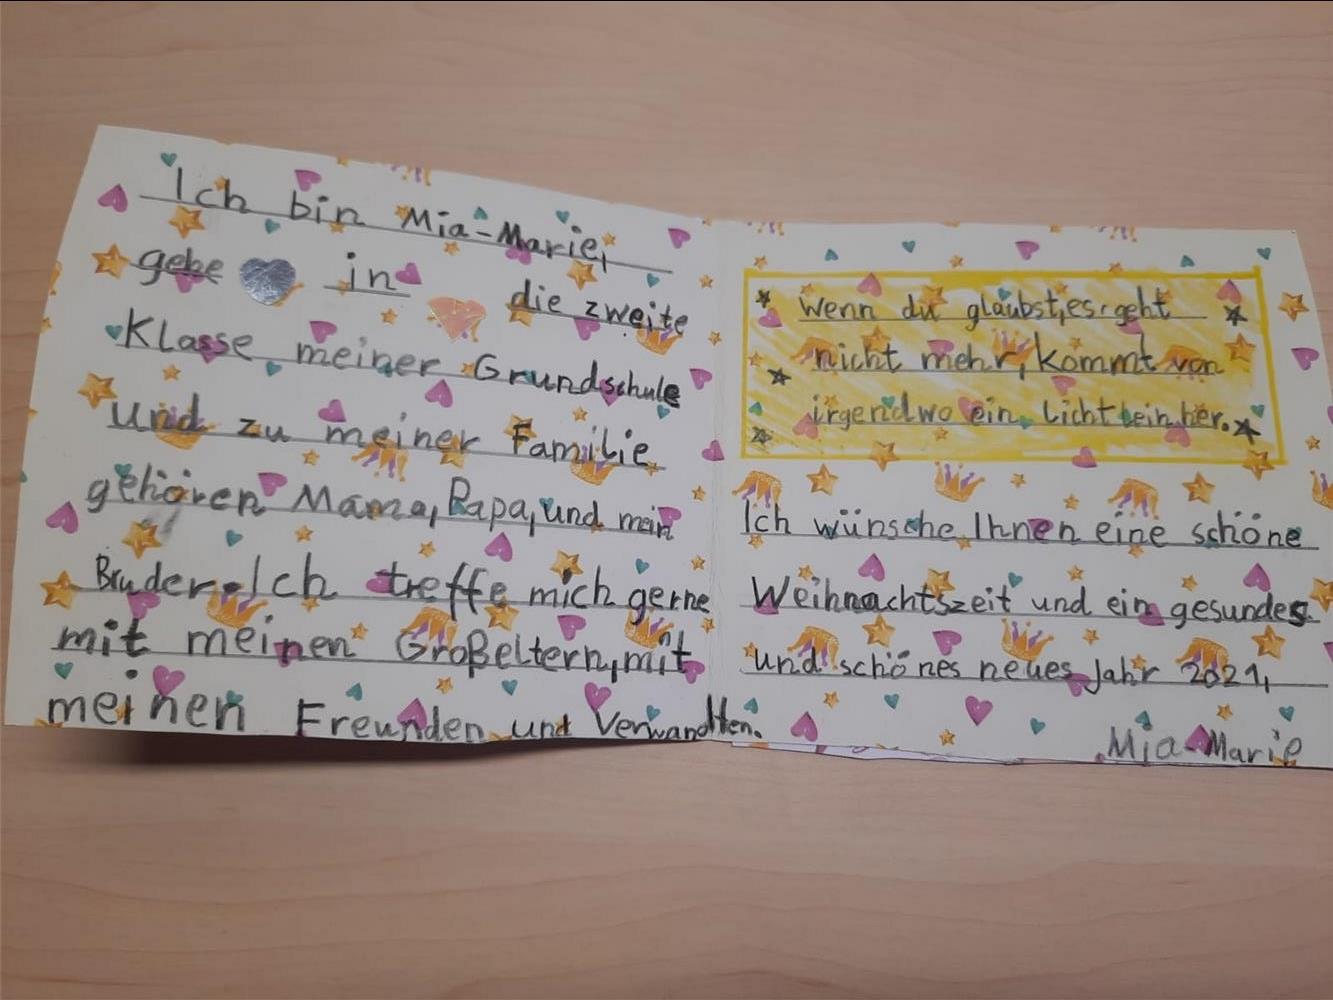 Ich bin Mia-Marie,
gehe in die zweite
Klasse meiner Grundschule
und zu meiner Familie
gehören Mama, Papa, und mein
Bruder. Ich treffe mich gerne
mit meinen Großeltern, mit
meinen Freunden und Verwandten.
Wenn du glaubst, es geht
nicht mehr, kommt von
irgendwo ein Lichtlein her.
Ich wünsche Ihnen eine schöne
Weihnachtszeit und ein gesundes
und schönes neues Jahr 2021,
Mia-Marie